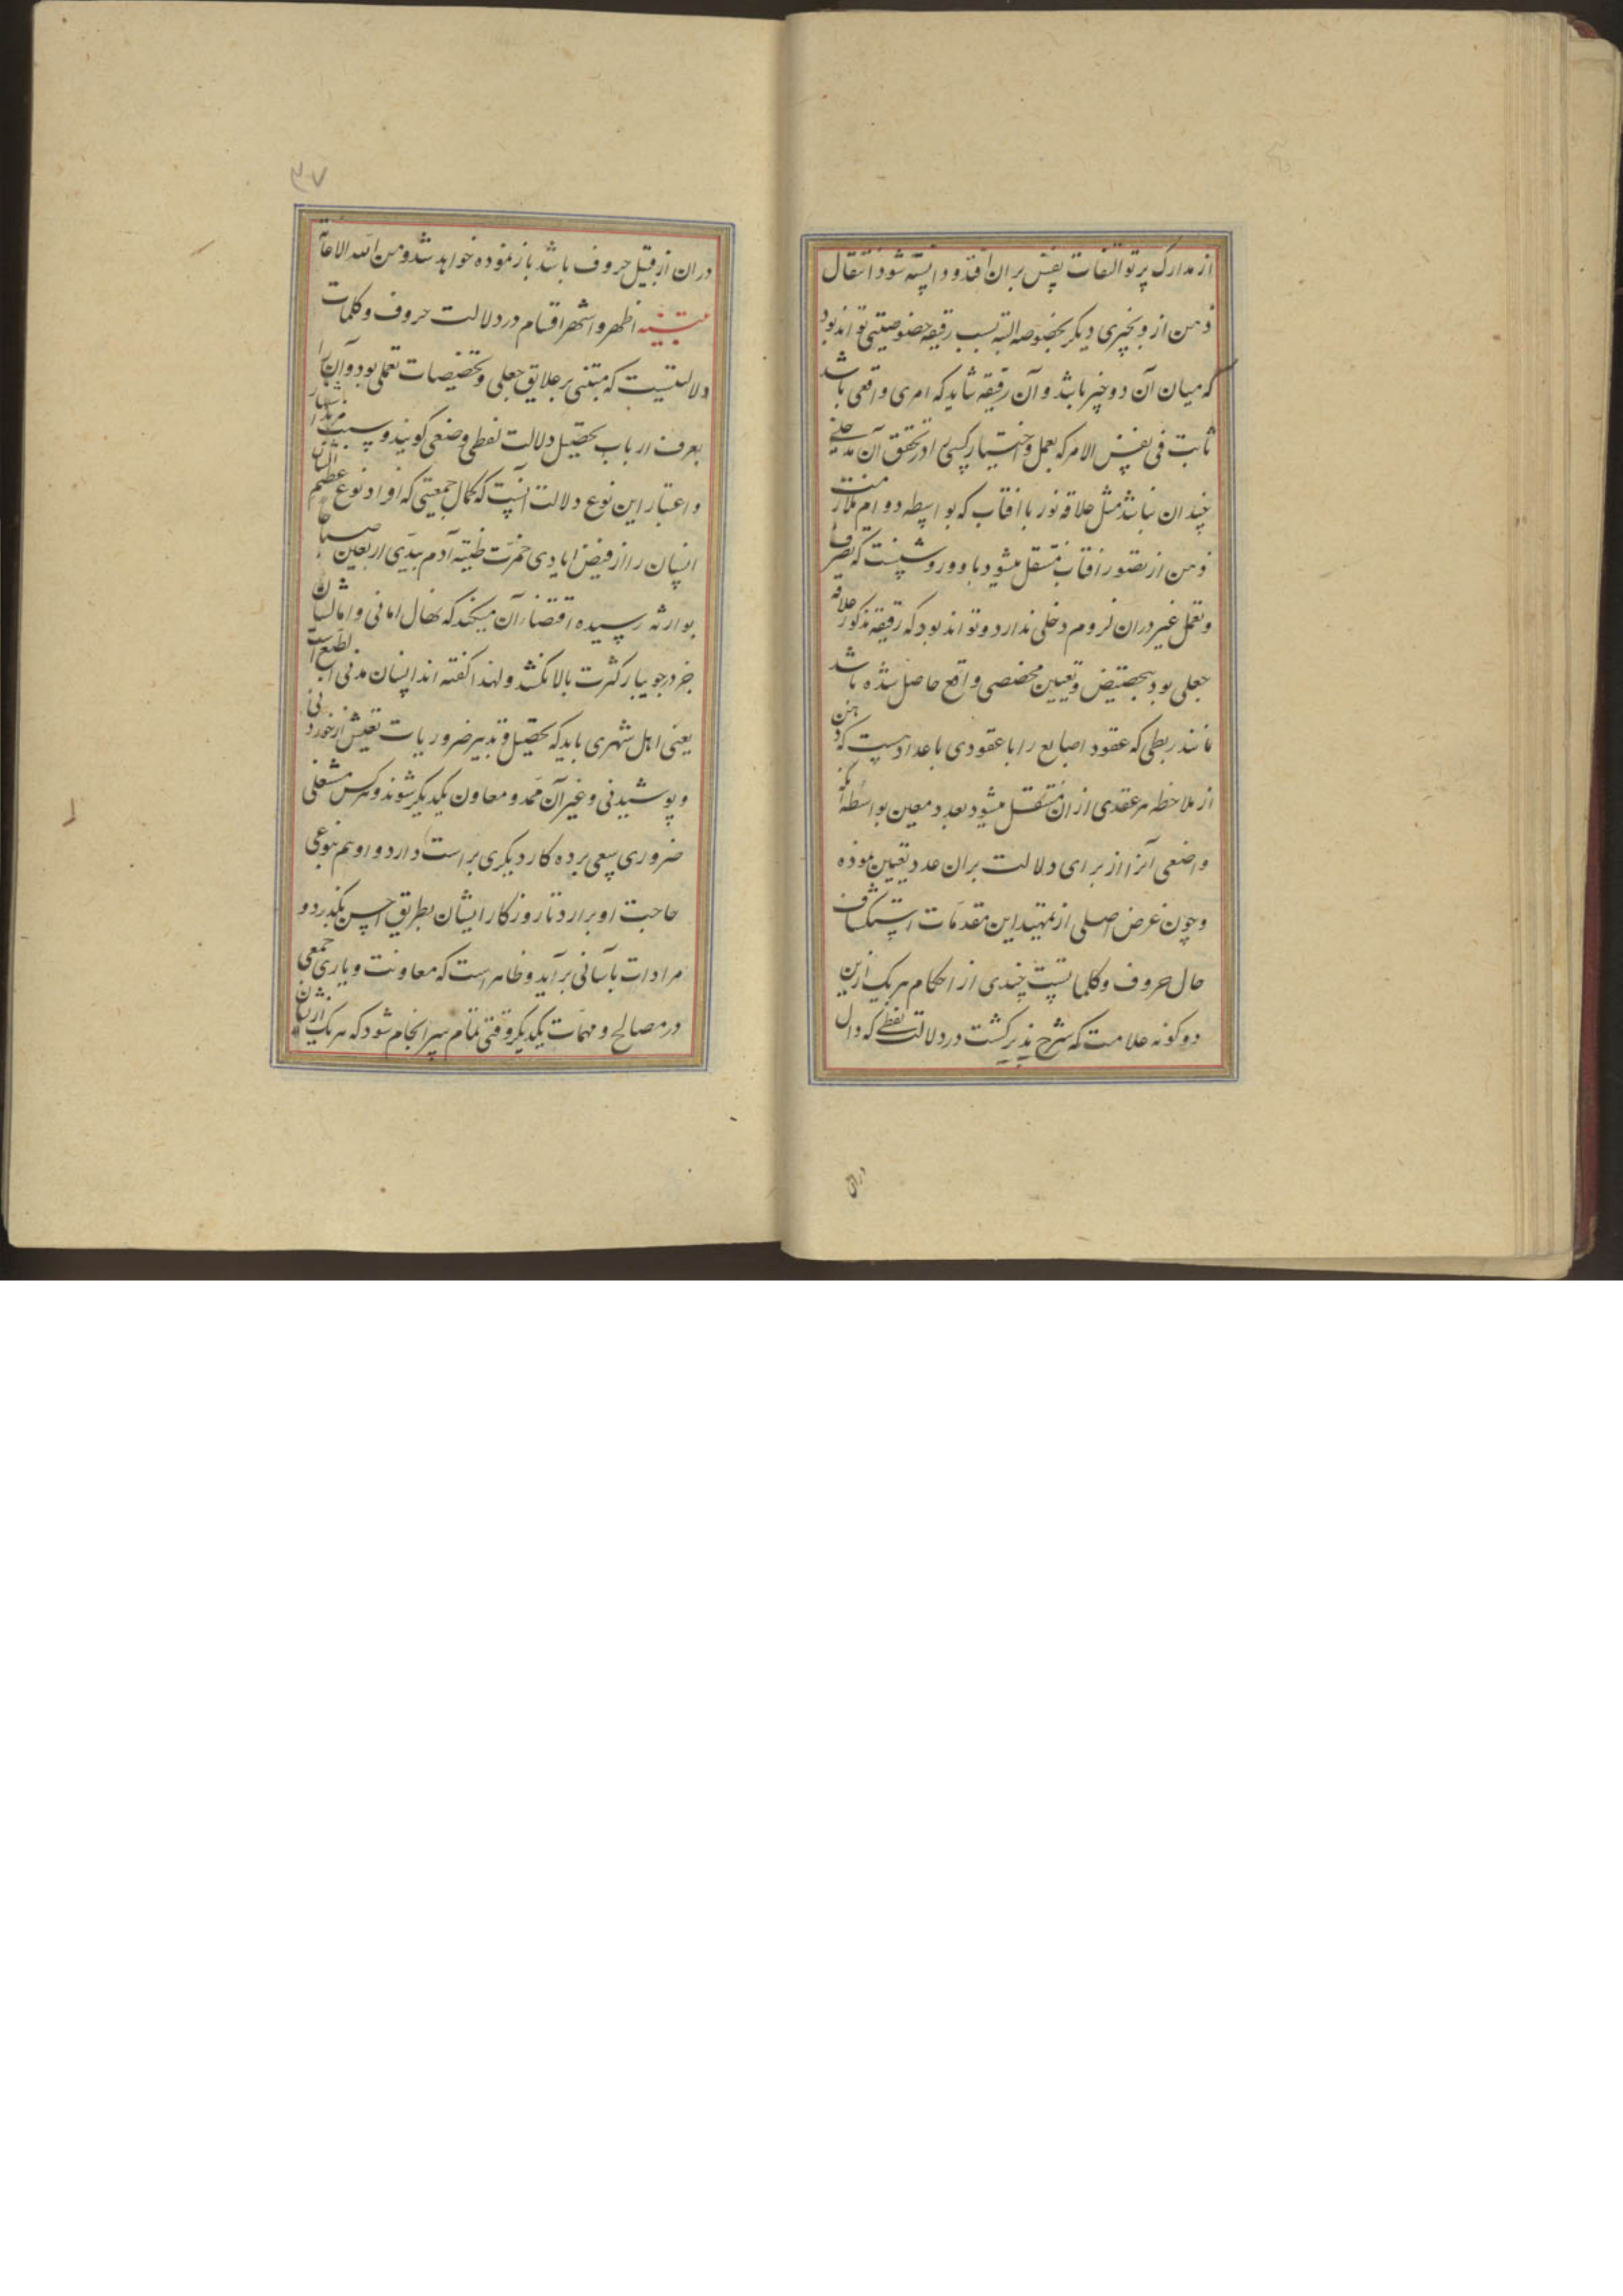 از مدارک پرتو التفات نفس بران افتد و دانسته شود انتقال
ذهن از و بچیزی دیگر بخصوصه البته بسبب رقیقه خصوصیتی تواند بود
که میان آن دو چیز باشد و آن رقیقه شاید که امری واقعی باشد
ثابت فی نفس الامر که بعمل و اختیار کسی را در تحقق آن مدخلی
چندان نباشد مثل علاقه نور با افتاب که بواسطه دوام ملازمت
ذهن از تصور افتاب منتقل میشود باو و روشنست که تصرف
و تعمل غیر دران لزوم دخلی ندارد و تواند بود که رقیقه مذکور علاقه
جعلی بود بتخصیص و تعیین مخصصی واقع حاصل شده باشد
مانند ربطی که عقود اصابع را با عقودی با عداد هست که ذهن
از ملاحظه هر عقدی ازان منتقل میشود بعدد معین بواسطه آنکه
واضعی آنرا از برای دلالت بران عدد تعیین نموده
و چون غرض اصلی از تمهید این مقدمات استکشاف
حال حروف و کلماتست چندی از احکام هر یک ازین
دو گونه علامت که شرح پذیر گشت در دلالت لفظی که دال
دران
۳۷
دران از قبیل حروف باشد باز نموده خواهد شد و من الله الاعانة
تنبیه اظهر و اشهر اقسام در دلالت حروف و کلمات
دلالتیست که مبتنی بر علایق جعلی و تخصیصات تعملی بود و آن را
بعرف ارباب تحصیل دلالت لفظی وضعی گویند و سبب مزید اشتهار
و اعتبار این نوع دلالت آنست که کمال جمعیتی که افراد نوع عظیم الشان
انسان را از فیض ایادی خمرت طینة آدم بیدی اربعین صباحا
بوارثه رسیده اقتضاء آن میکند که نهال امانی و امالشان
جز در جویبار کثرت بالا نکشد و لهذا گفته اند انسان مدنی بالطبع است
یعنی اهل شهری باید که بتحصیل و تدبیر ضروریات تعیش از خوردنی
و پوشیدنی و غیر آن ممد و معاون یکدیگر شوند و هر کس مشغلی
ضروری سعی برده کار دیگری براست دارد و او هم بنوعی
حاجت او برارد تا روزکار ایشان بطریق احسن بگذرد و
مرادات بآسانی برآید و ظاهر است که معاونت و یاری جمعی
در مصالح و مهمات یکدیگر وقتی تمام سرانجام شود که هر یک ازیشان